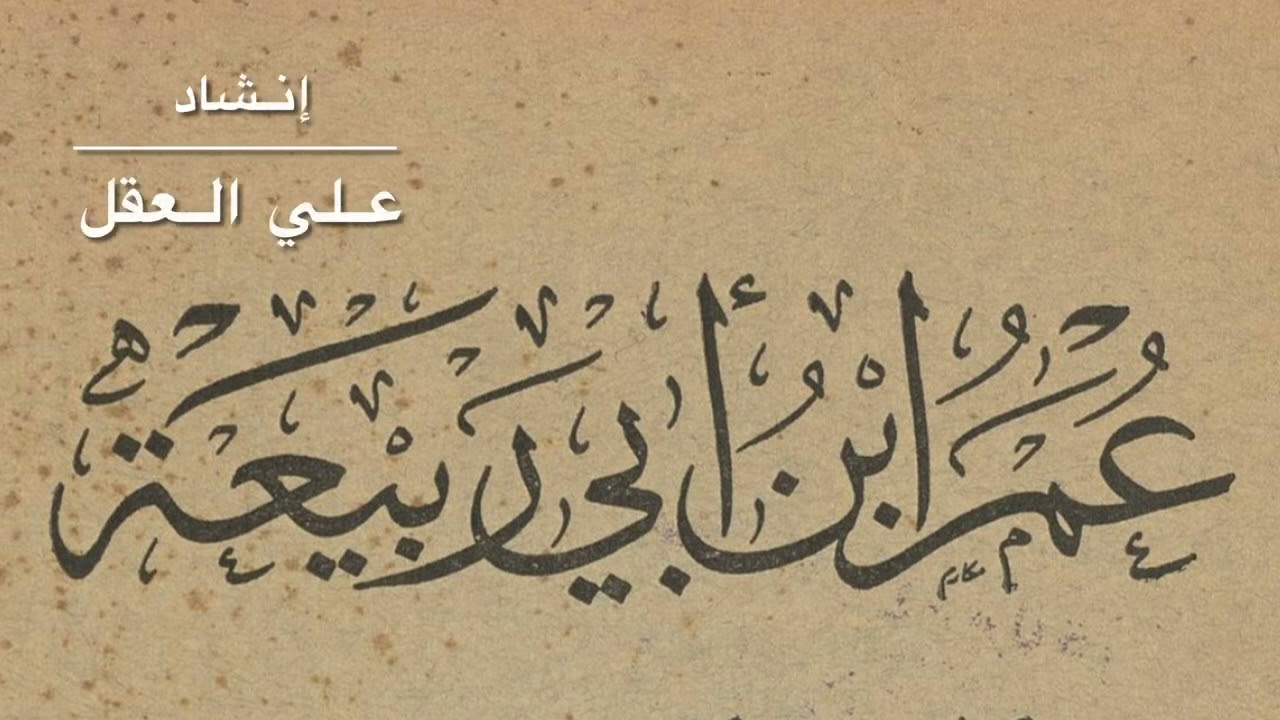 إنشاد
علي العقل
عُمَرُ ابْنُ أَبِي رَبِيْعَةَ